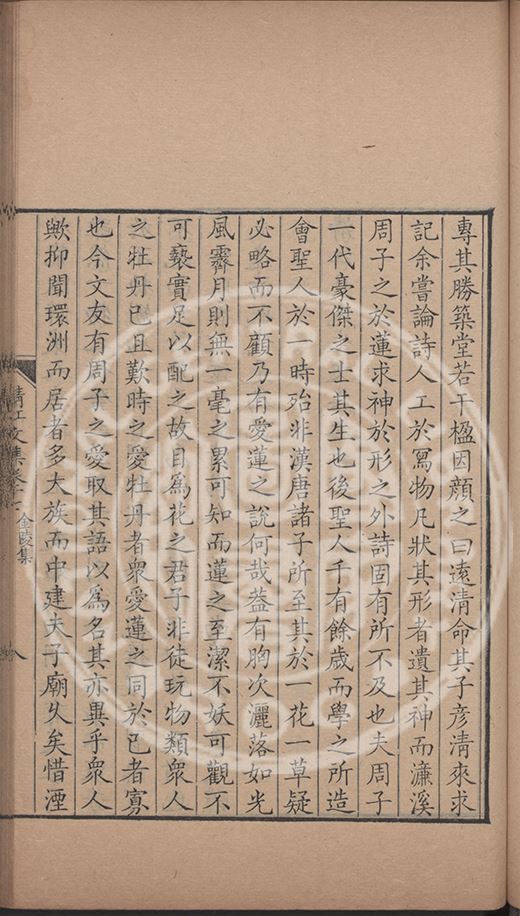 專其勝築堂若干楹因顏之曰遠清命其子彦清來求
記余嘗論詩人工於寫物凡狀其形者遺其神而濂溪
周子之於蓮求神於形之外詩固有所不及也夫周子
一代豪傑之士其生也後聖人千有餘歲而學之所造
會聖人於一時殆非漢唐諸子所至其於一花一草疑
必略而不顧乃有愛蓮之說何哉葢有胸次灑落如光
風霽月則無一毫之累可知而蓮之至潔不妖可觀不
可褻實足以配之故目爲花之君子非徒玩物類衆人
之牡丹已且歎時之愛牡丹者衆愛蓮之同於已者寡
也今文友有周子之愛取其語以爲名其亦異乎衆人
歟抑聞環洲而居者多大族而中建夫子廟乆矣惜湮
清江文集卷十
金陵集
八